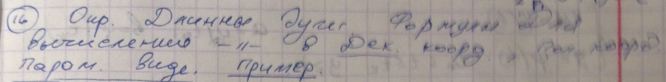 16 Опр. Длинны дуги. Формулы Для
вычисления -"- в Дек. коорд, Пол. коорд
Парам. виде. Пример.